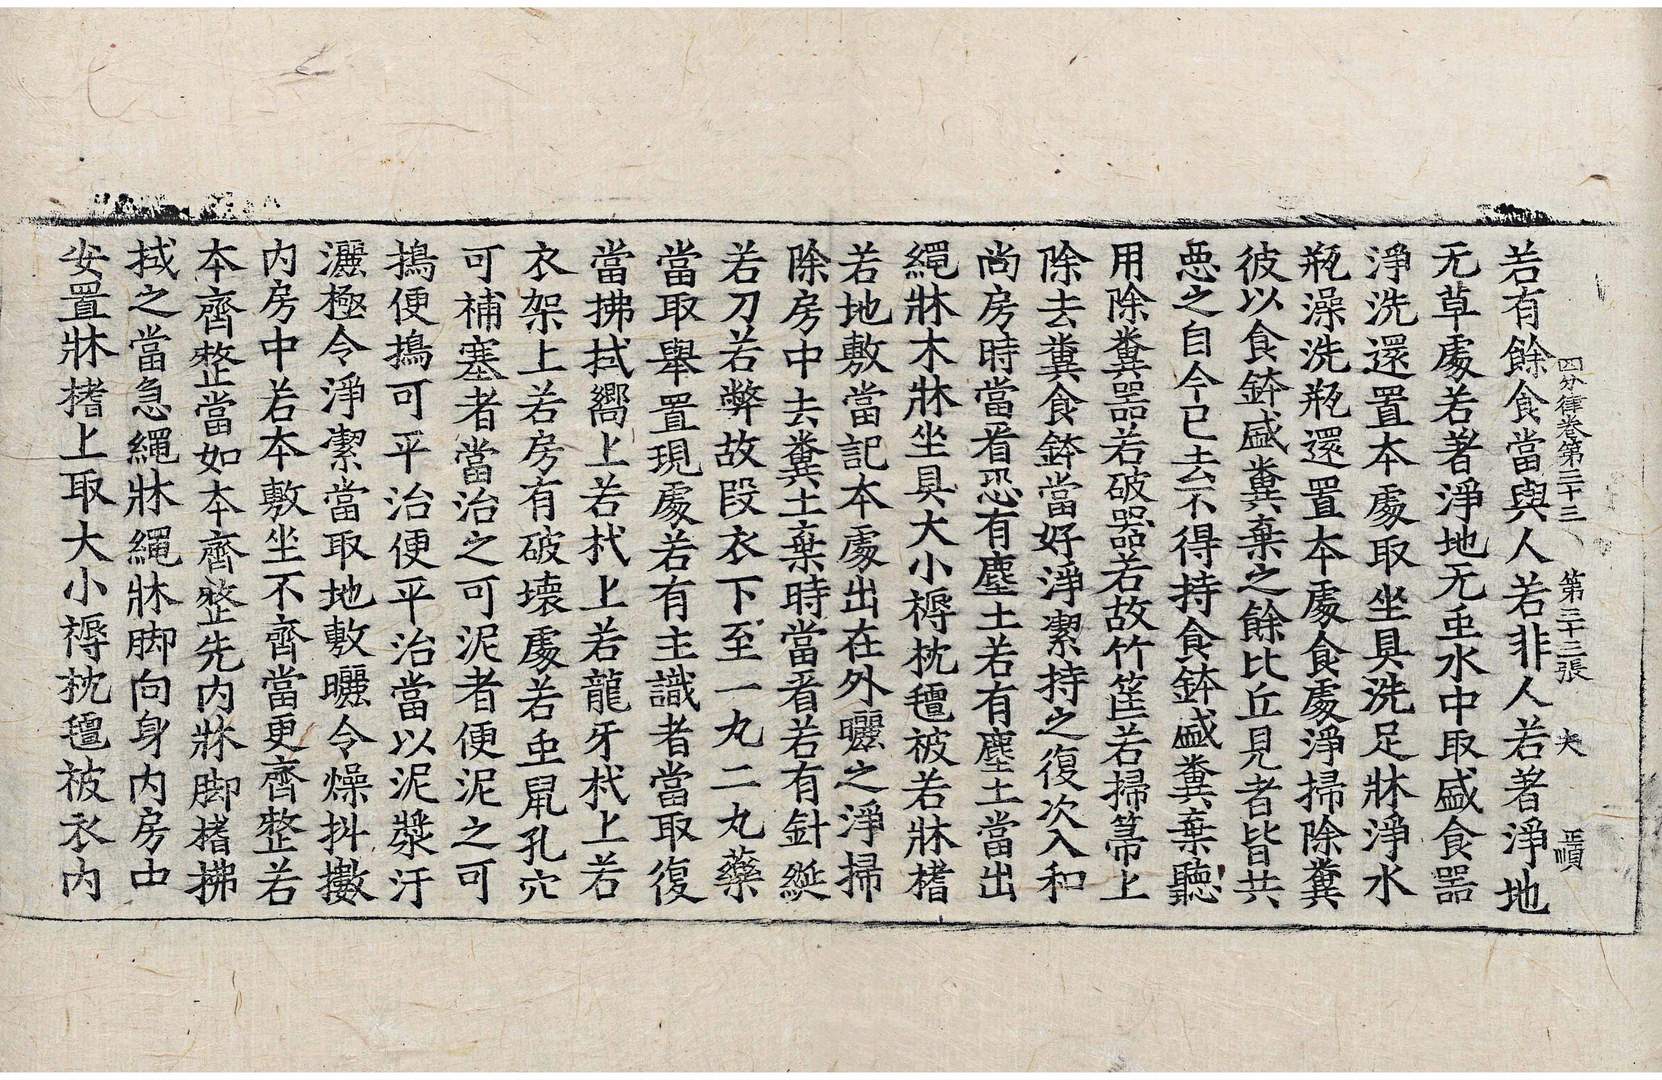 四分律卷第三十三 第三十三張 犬
若有餘食當與人若非人若著淨地
无草處若著淨地无虫水中取盛食器
淨洗還置本處取坐具洗足牀淨水
瓶澡洗瓶還置本處食處淨掃除糞
彼以食鉢盛糞棄之餘比丘見者皆共
惡之自今已去不得持食鉢盛糞棄聽
用除糞器若破器若故竹筐若掃箒上
除去糞食鉢當好淨潔持之復次入和
尚房時當看恐有塵土若有塵土當出
繩牀木牀坐具大小褥枕氈被若牀榰
若地敷當記本處出在外曬之淨掃
除房中去糞土棄時當看若有針綖
若刀若弊故段衣下至一丸二丸藥
當取舉置現處若有主識者當取復
當拂拭嚮上若杙上若龍牙杙上若
衣架上若房有破壞處若虫鼠孔穴
可補塞者當治之可泥者便泥之可
搗便搗可平治便平治當以泥漿汙
灑極令淨潔當取地敷曬令燥抖擻
內房中若本敷坐不齊當更齊整若
本齊整當如本齊整先內牀脚榰拂
拭之當急繩牀繩牀脚向身內房中
安置牀榰上取大小褥枕氈被衣內